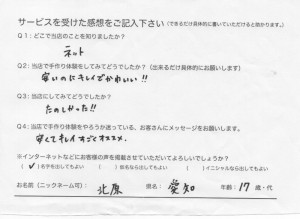 サービスを受けた感想をご記入下さい(できるだけ具体的に書いていただけると助かります。)
Q1:どこで当店のことを知りましたか?
ネット
Q2:当店で手作り体験をしてみてどうでしたか?(出来るだけ具体的にお願いします)
安いのにキレイでかわいい!!
Q3:当店にしてみてどうでしたか?
たのしかった!!
Q4:当店で手作り体験をやろうか迷っている、お客さんにメッセージをお願いします。
安くてキレイすごくオススメ.
※インターネットなどにお客様の声を掲載させていただいてよろしいでしょうか?
(✓)名字を出してもよい ( )匿名なら出してもよい ( )イニシャルなら出してもよい
お名前(ニックネーム可):北原 県名:愛知 年齢:17歳・代